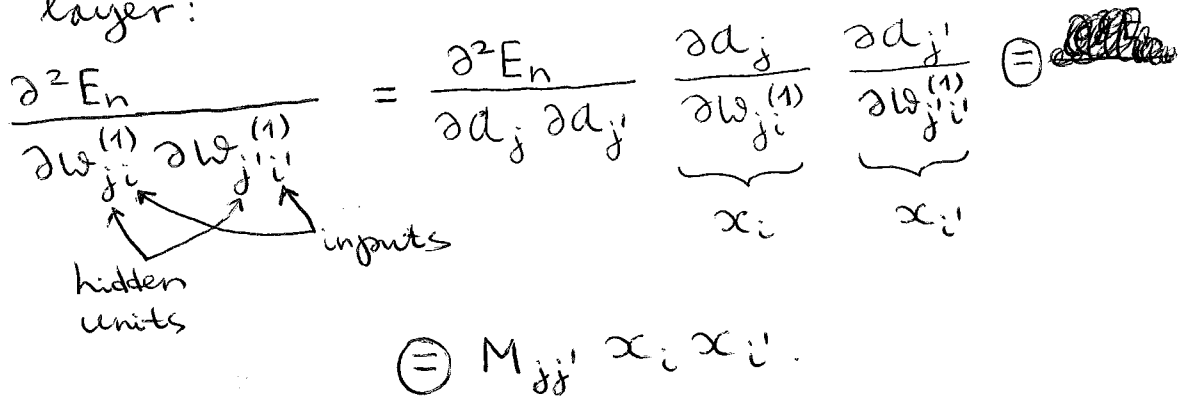 layer:
∂²Eₙ / ∂w_{ji}^{(1)} ∂w_{j'i'}^{(1)} = ∂²Eₙ / ∂a_j ∂a_{j'} · ∂a_j / ∂w_{ji}^{(1)} · ∂a_{j'} / ∂w_{j'i'}^{(1)} ⊜
x_i x_{i'}
inputs
hidden
units
⊜ M_{jj'} x_i x_{i'}.